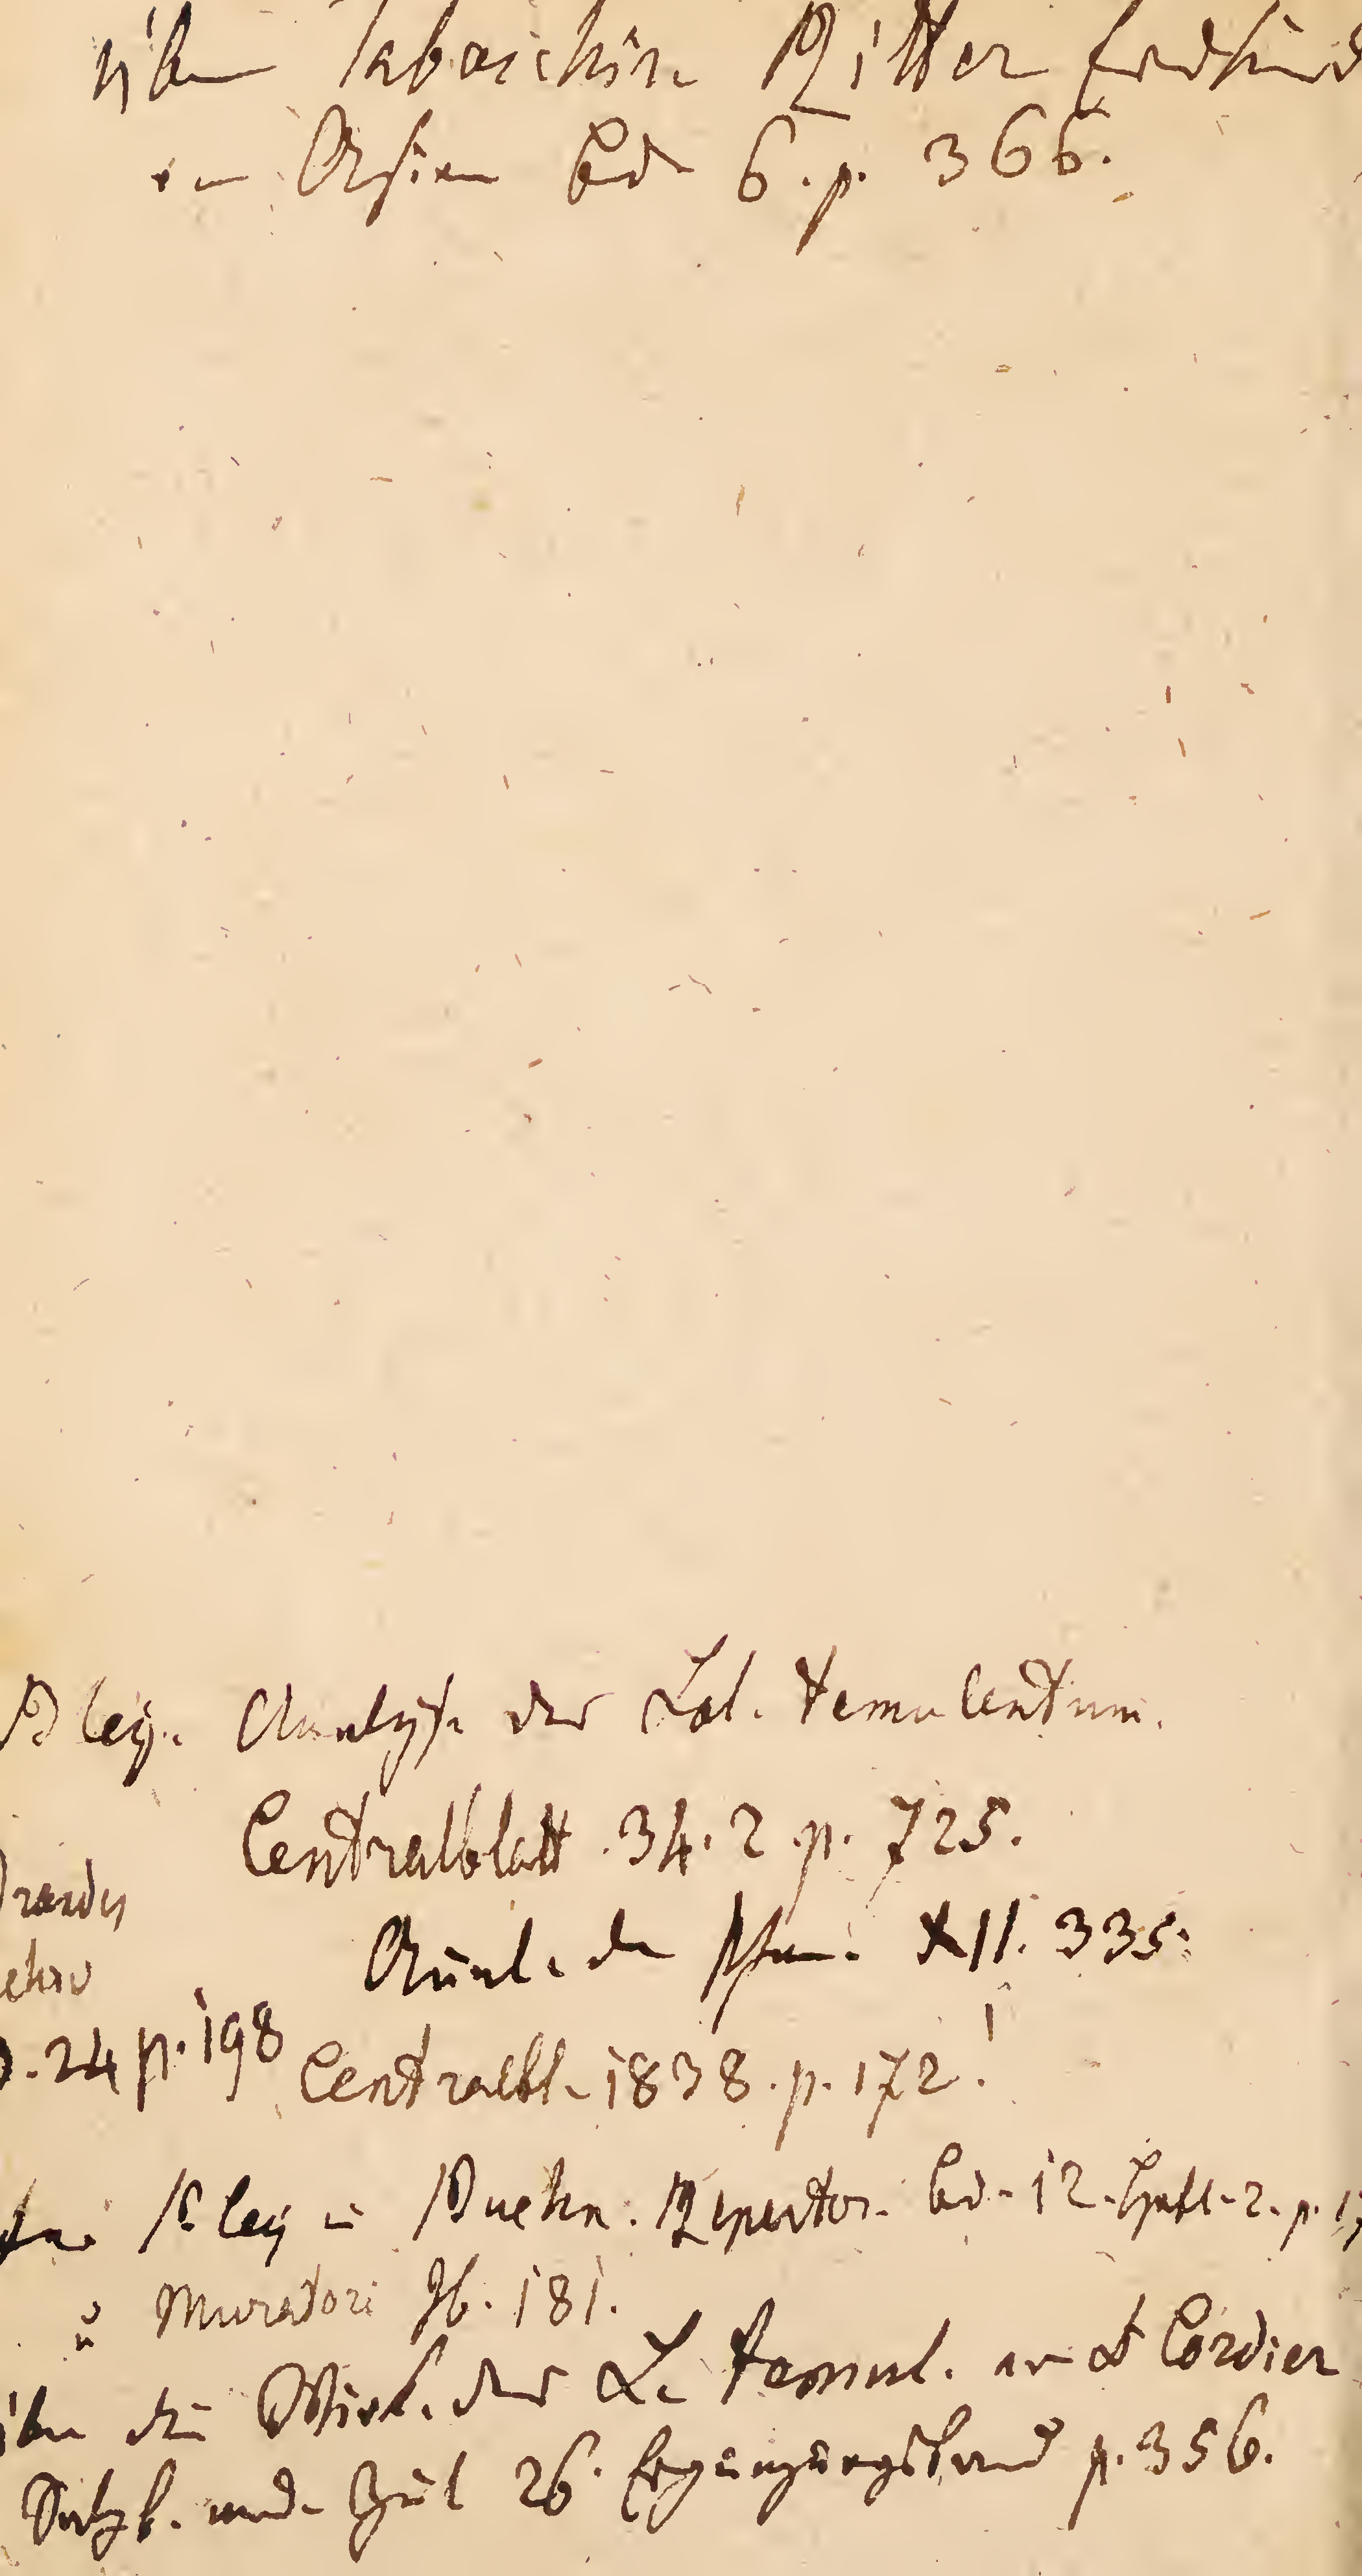 über Tabaschir Ritter Erdkund
in Asien Bd 6. p. 366.
Bley. Analyse des Lol. temulentum.
Centralblatt. 34. 2 p. 725.
Brandes
Annal. de Phar. XII. 335.
.24 p. 198
Centralbl. 1838. p. 172.
Bley in Buchn. Repertor. Bd. 12. Heft. 2. p.
u Muratori Ib. 181.
über die Wirk. des L. temul. Cordier
Salzb. med. Zeit 26. Ergänzungsband p. 356.